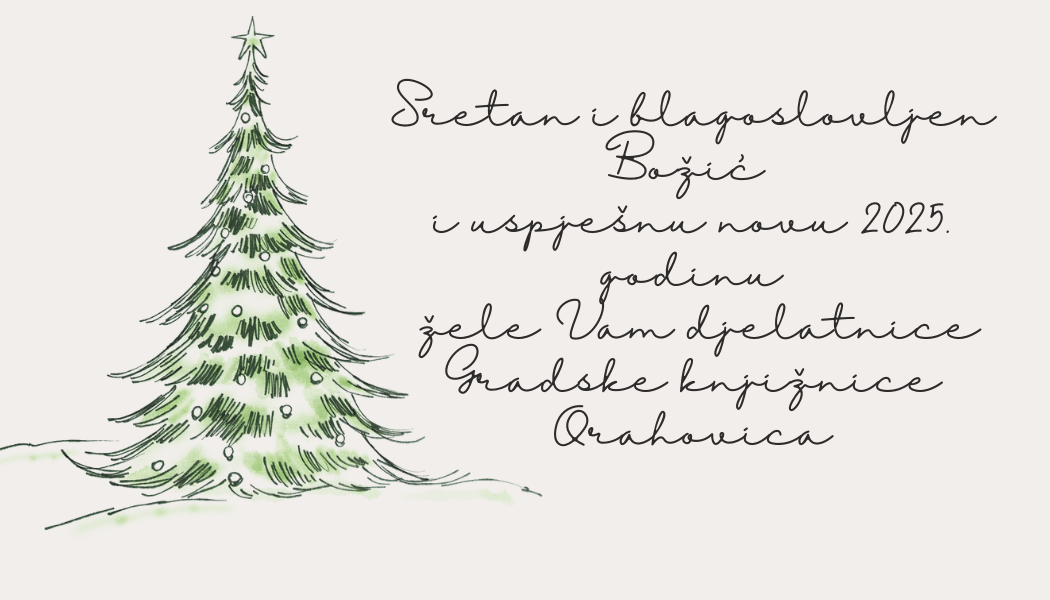 Sretan i blagoslovljen
Božić
i uspješnu novu 2025.
godinu
žele Vam djelatnice
Gradske knjižnice
Orahovica